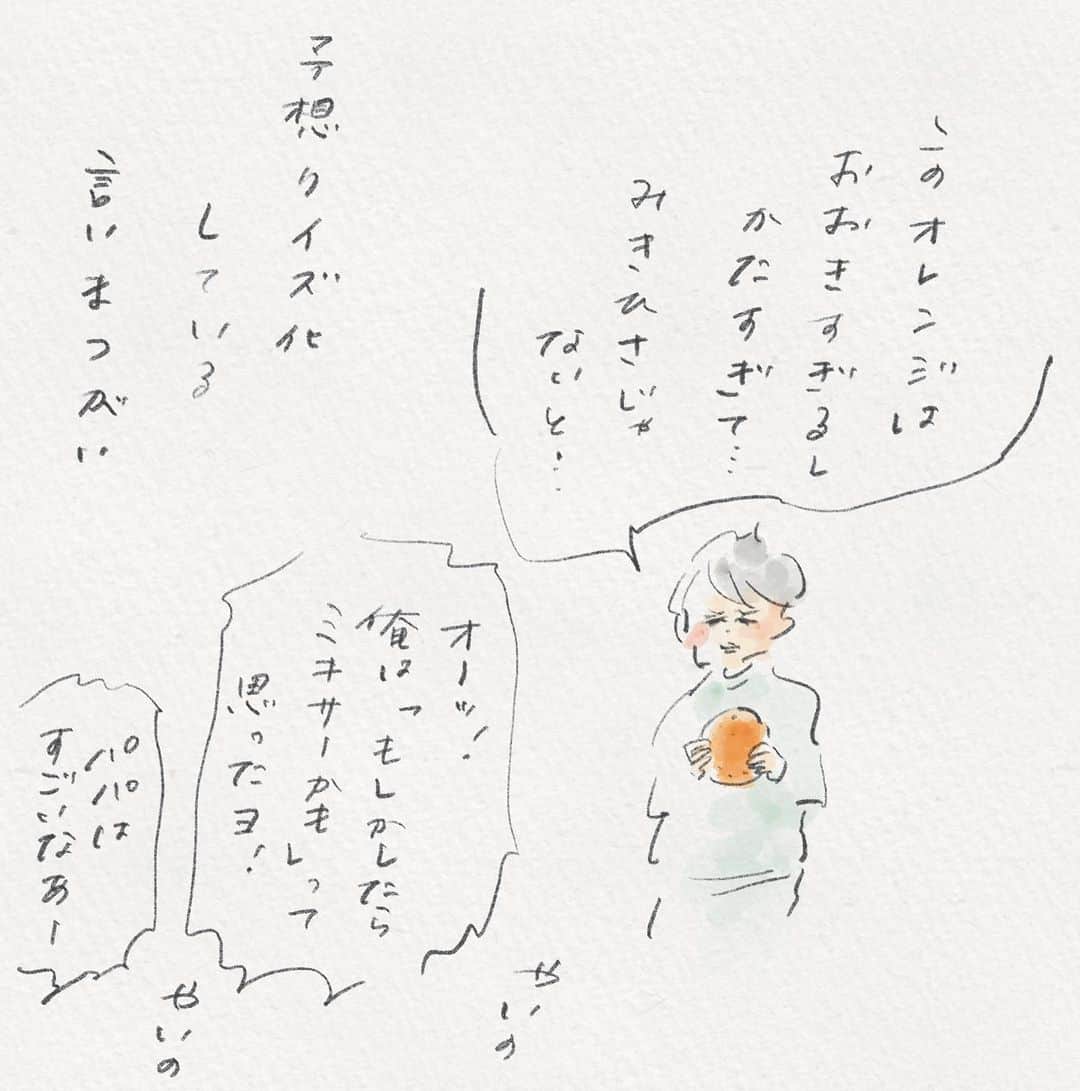 このオレンジは
おおきすぎるし
かたすぎて…
みきひさじゃ
ないと…
予想クイズ化
している
言いまつがい
オーッ！
俺はっもしかしたら
ミキサーかもしって
思ったヨ！
やいの
パパは
すごいなあー
やいの